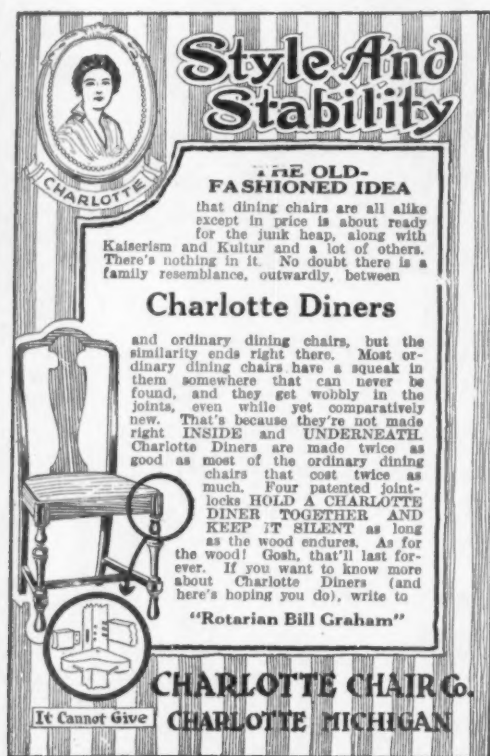 Style And
Stability
CHARLOTTE
THE OLD-
FASHIONED IDEA
that dining chairs are all alike
except in price is about ready
for the junk heap, along with
Kaiserism and Kultur and a lot of others.
There's nothing in it. No doubt there is a
family resemblance, outwardly, between
Charlotte Diners
and ordinary dining chairs, but the
similarity ends right there. Most or-
dinary dining chairs have a squeak in
them somewhere that can never be
found, and they get wobbly in the
joints, even while yet comparatively
new. That's because they're not made
right INSIDE and UNDERNEATH.
Charlotte Diners are made twice as
good as most of the ordinary dining
chairs that cost twice as
much. Four patented joint-
locks HOLD A CHARLOTTE
DINER TOGETHER AND
KEEP IT SILENT as long
as the wood endures. As for
the wood! Gosh, that'll last for-
ever. If you want to know more
about Charlotte Diners (and
here's hoping you do), write to
"Rotarian Bill Graham"
It Cannot Give
CHARLOTTE CHAIR Co.
CHARLOTTE MICHIGAN